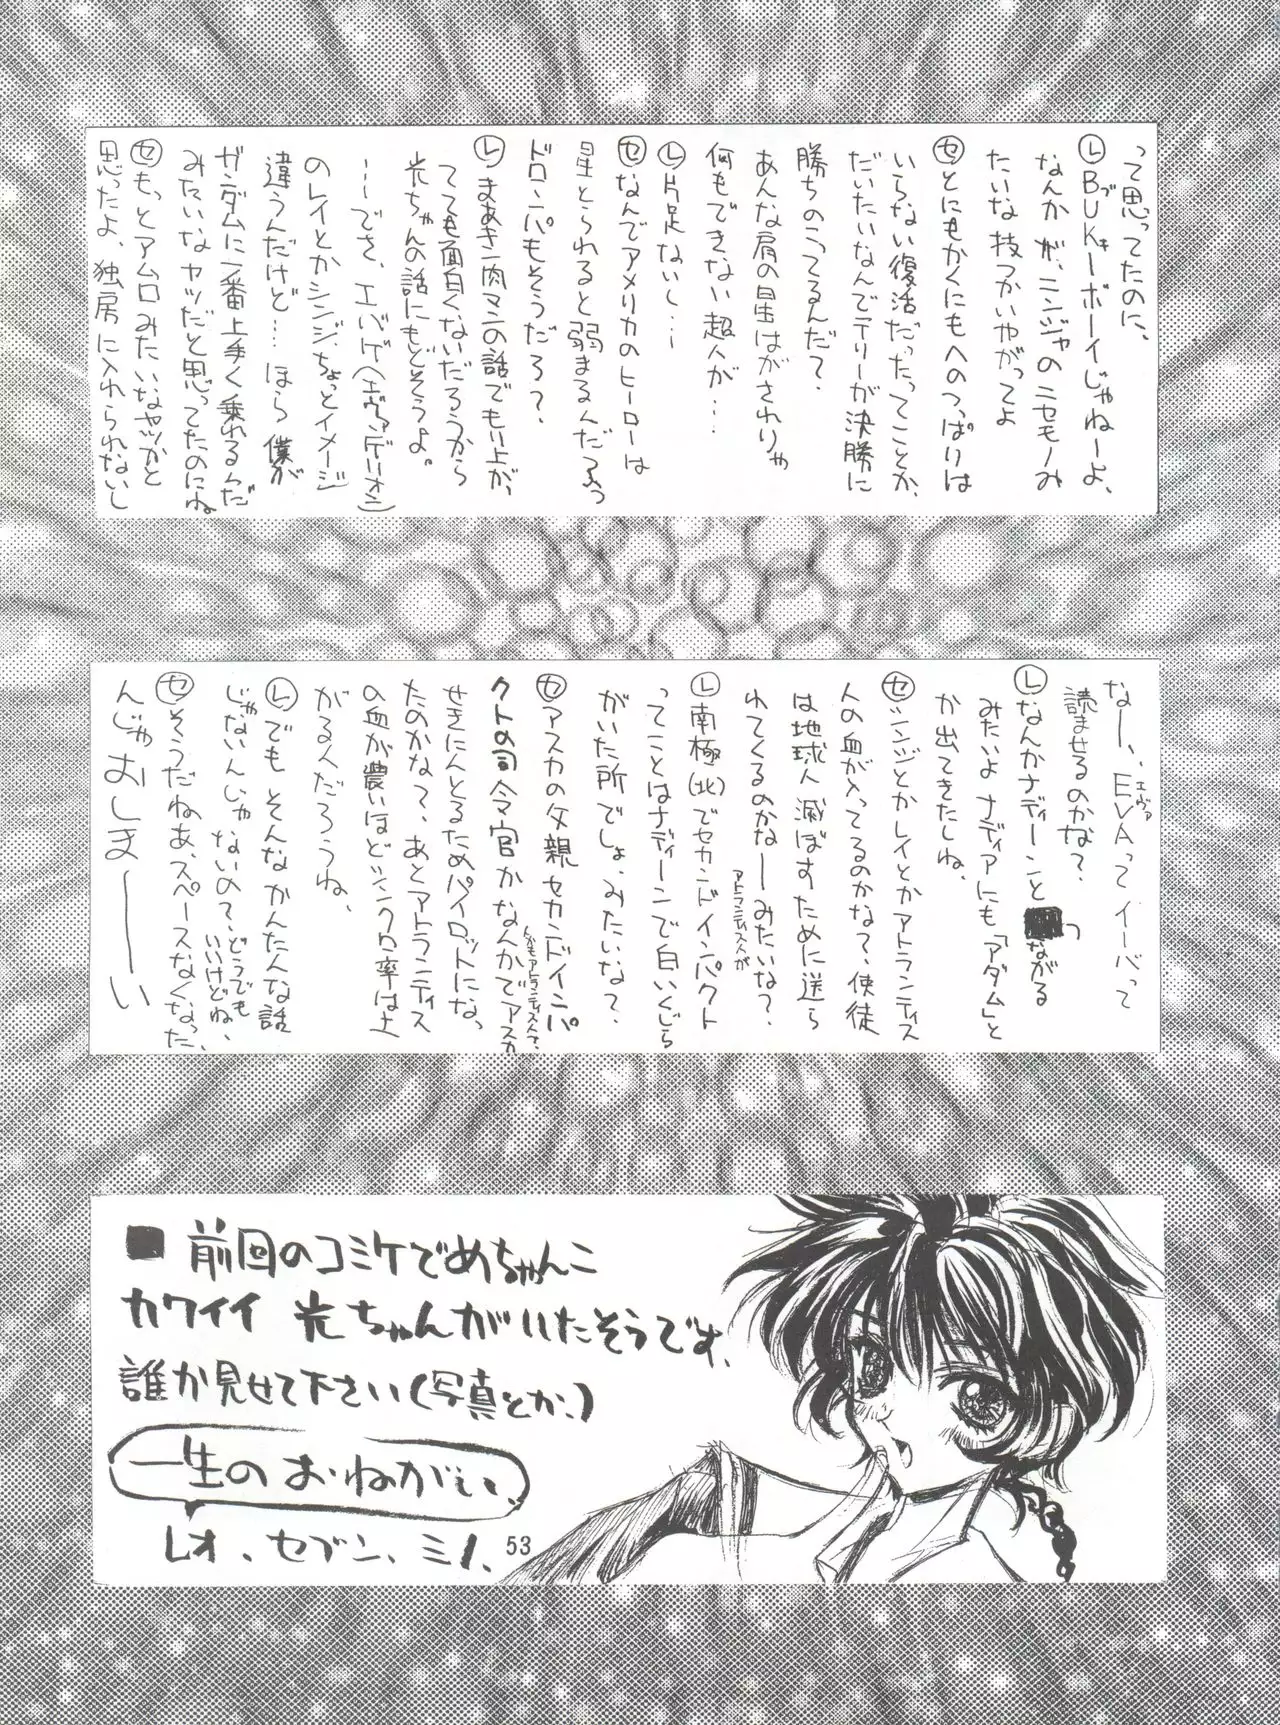 って思ってたのに、
㋹BUKキーボーイじゃねーよ、
なんかが、ニンジャのニセモノみ
たいな技つかいやがってよ
㋝とにもかくにもへのつっぱりは
いらない復活だったってことか、
だいたいなんでテリーが決勝に
勝ちのこってるんだ?
あんな肩の星はがされりゃ
何もできない超人が…
㋹片足ないし…
㋝なんでアメリカのヒーローは
星とられると弱まるんだろっ
ドロンパもそうだろ?
㋹まあキン肉マンの話でもり上が、
てても面白くないだろうから
光ちゃんの話にもどそうよ。
…でさ、エバゲ(エヴァンゲリオン)
のレイとかシンジ、ちょっとイメージ
違うんだけど…ほら僕が
ガンダムに一番上手く乗れるんだ
みたいなヤツだと思ってたのにね
㋝もっとアムロみたいなヤツかと
思ったよ、独房に入れられないし
なー、EVAエヴァってイーバって
読ませるのかな?
㋹なんかナディーンとつながる
みたいよナディアにも「アダム」と
か出てきたしね、
㋝シンジとかレイとかアトランティス
人の血が入ってるのかな?、使徒
は地球人滅ぼすために送ら
れてくるのかなーみたいな?、
アトランティス人が
㋹南極(北)でセカンドインパクト
ってことはナディーンで白いくじら
がいた所でしょ、みたいな?
㋝アスカの父親セカンドインパ
クトの司令官かなんかでアスカ
せきにんとるためパイロットになっ
たのかな?、あとアトランティス
の血が農いほどシンクロ率は上
がる人だろうね、
㋹でもそんなかんたんな話
じゃないんじゃないの?、どうでも
いいけどね、
㋝そうだねあ、スペースなくなった、
んじゃおしまーーい
■前回のコミケでめちゃんこ
カワイイ光ちゃんがいたそうです、
誰か見せて下さい(写真とか、)
一生のおねがい、
レオ、セブン、ミノ、
53